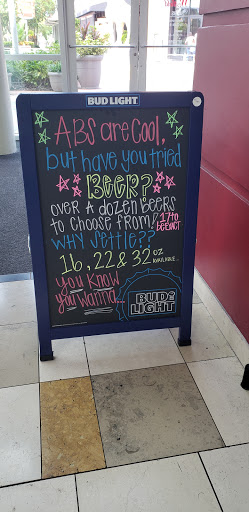 BUD LIGHT
ABS are COOL,
but have you tried
BEER?
OVER A dozen BEERS
to choose from!
WHY settle??
16, 22 & 32 oz
AVAILABLE
You Know
you Wanna...
BUD
LIGHT